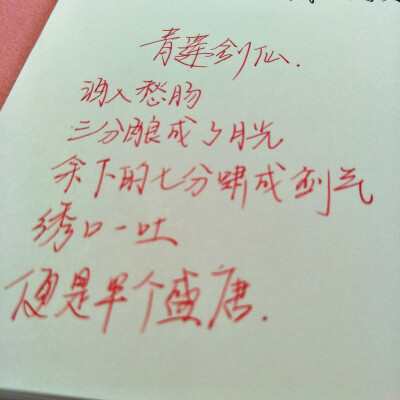 青莲剑仙.
酒入愁肠
三分酿成了月光
余下的七分啸成剑气
绣口一吐
便是半个盛唐.